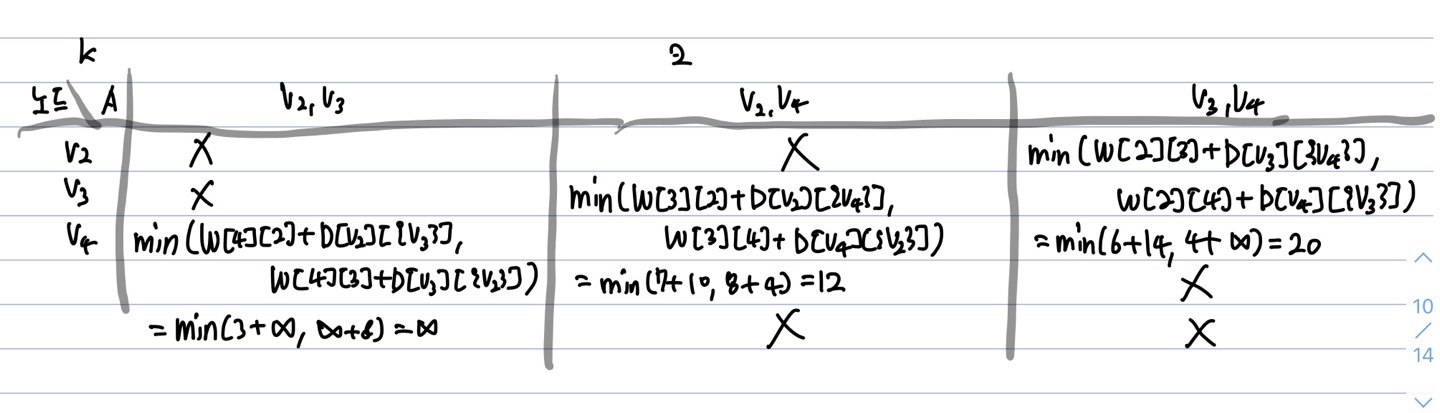 k 2
노드 A V2, V3 V2, V4 V3, V4
V2 X X min(W[2][3]+D[V3][{V4}],
W[2][4]+D[V4][{V3}])
=min(6+14, 4+∞)=20
V3 X min(W[3][2]+D[V2][{V4}],
W[3][4]+D[V4][{V2}])
=min(7+10, 8+4)=12
X
V4 min(W[4][2]+D[V2][{V3}],
W[4][3]+D[V3][{V2}])
=min(3+∞, ∞+8)=∞
X
X
10
/
14